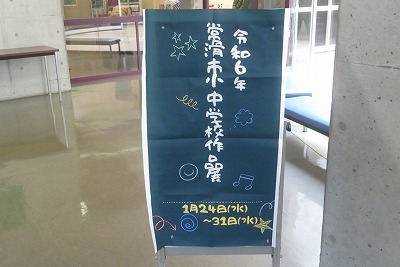 令和6年
常滑市小中学校作品展
1月24日(水)
〜31日(水)